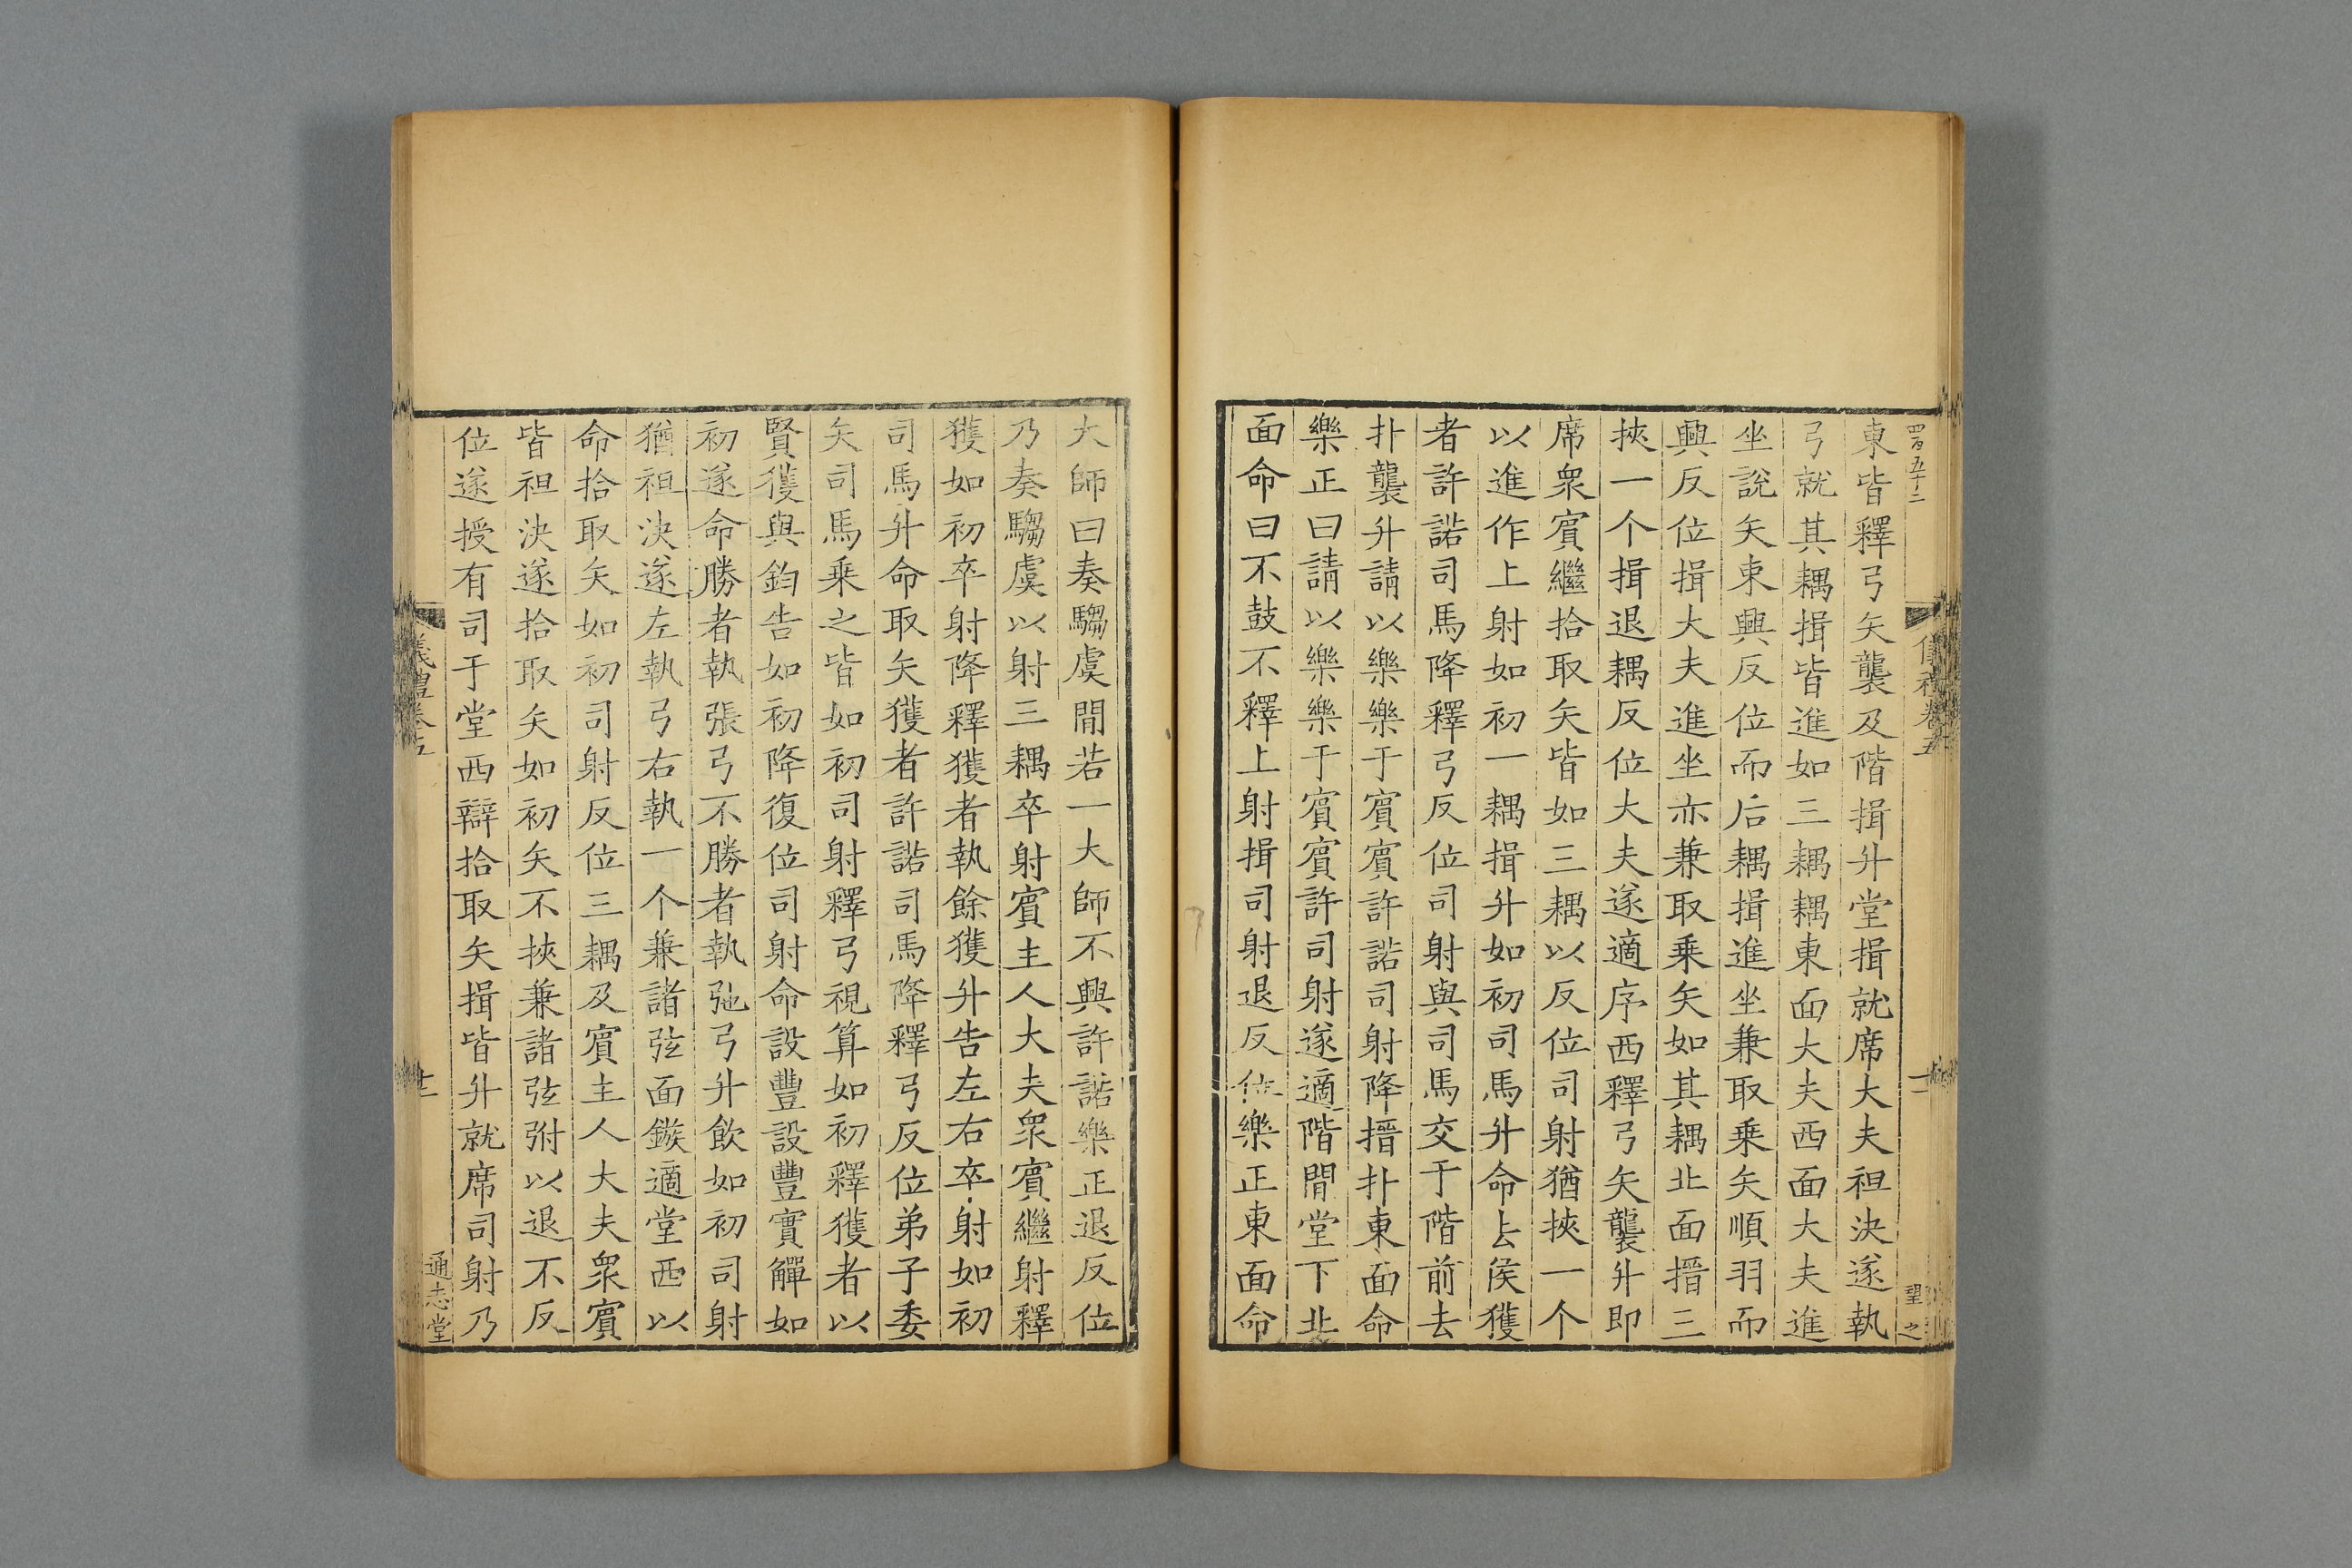 四百五十二
儀禮卷五
望之
東皆釋弓矢襲及階揖升堂揖就席大夫袒決遂執
弓就其耦揖皆進如三耦耦東面大夫西面大夫進
坐說矢束興反位而后耦揖進坐兼取乗矢順羽而
興反位揖大夫進坐亦兼取乗矢如其耦北面搢三
挾一个揖退耦反位大夫遂適序西釋弓矢襲升即
席衆賓繼拾取矢皆如三耦以反位司射猶挾一个
以進作上射如初一耦揖升如初司馬升命去侯獲
者許諾司馬降釋弓反位司射與司馬交于階前去
扑襲升請以樂樂于賓賓許諾司射降搢扑東面命
樂正曰請以樂樂于賓賓許司射遂適階閒堂下北
面命曰不鼓不釋上射揖司射退反位樂正東面命
大師曰奏騶虞閒若一大師不興許諾樂正退反位
乃奏騶虞以射三耦卒射賓主人大夫衆賓繼射釋
獲如初卒射降釋獲者執餘獲升告左右卒射如初
司馬升命取矢獲者許諾司馬降釋弓反位弟子委
矢司馬乗之皆如初司射釋弓視算如初釋獲者以
賢獲與鈞告如初降復位司射命設豐設豐實觶如
初遂命勝者執張弓不勝者執弛弓升飲如初司射
猶袒決遂左執弓右執一个兼諸弦面鏃適堂西以
命拾取矢如初司射反位三耦及賓主人大夫衆賓
皆袒決遂拾取矢如初矢不挾兼諸弦弣以退不反
位遂授有司于堂西辯拾取矢揖皆升就席司射乃
儀禮卷五
通志堂